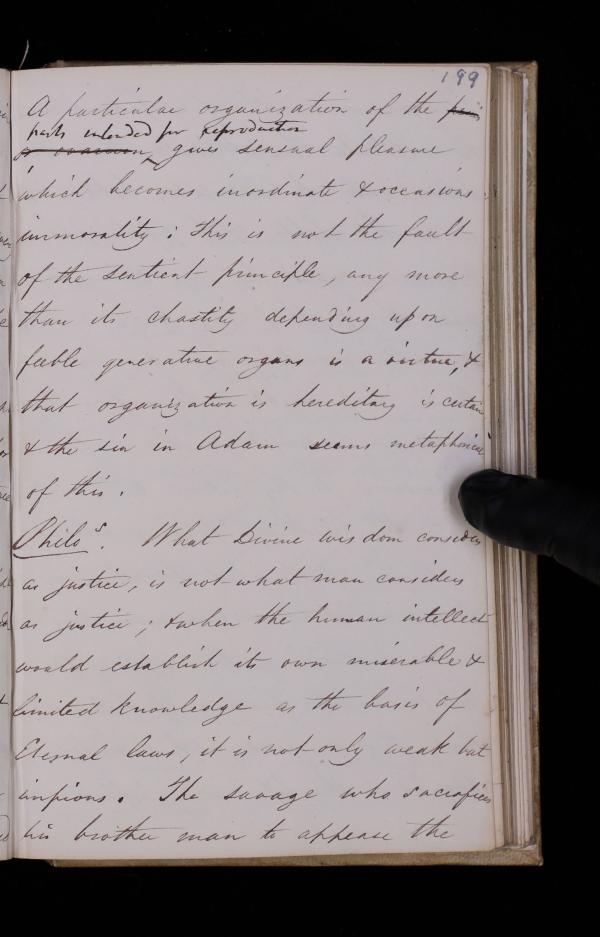 199
A particular organization of the
parts intended for reproduction
or ovarium, gives sensual pleasure
which becomes inordinate & occasions
immorality: This is not the fault
of the sentient principle, any more
than its chastity depending upon
feeble generative organs is a virtue, &
that organization is hereditary is certain
& the sin in Adam seems metaphorical
of this.
Philos. What Divine wisdom considers
as justice, is not what man considers
as justice; & when the human intellect
would establish its own miserable &
limited knowledge as the basis of
Eternal laws, it is not only weak but
impious. The savage who sacrifices
his brother man to appease the